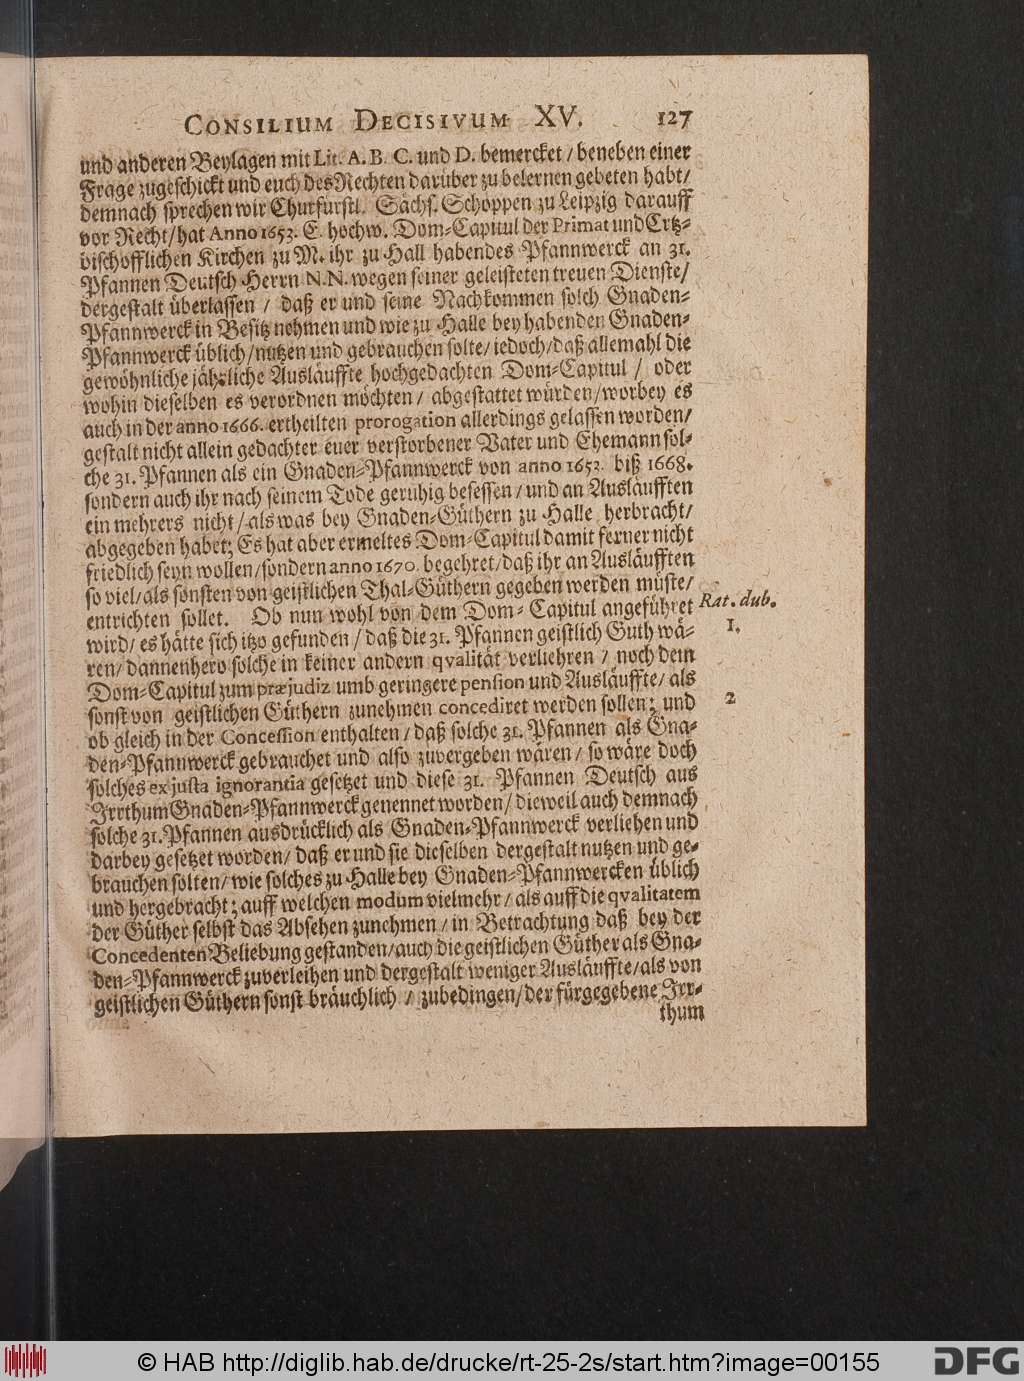 CONSILIUM DECISIVUM XV. 127
und anderen Beylagen mit Lit. A. B. C. und D. bemercket / beneben einer
Frage zugeschickt und euch des Rechten darüber zu belernen gebeten habt/
demnach sprechen wir Churfürstl. Sächs. Schöppen zu Leipzig darauff
vor Recht/hat Anno 1653. E. hochw. Dom-Capitul der Primat und Ertz-
bischofflichen Kirchen zu M. ihr zu Hall habendes Pfannwerck an 31.
Pfannen Deutsch Herrn N. N. wegen seiner geleisteten treuen Dienste/
dergestalt überlassen / daß er und seine Nachkommen solch Gnaden-
Pfannwerck in Besitz nehmen und wie zu Halle bey habenden Gnaden-
Pfannwerck üblich/nutzen und gebrauchen solte/iedoch/daß allemahl die
gewöhnliche jährliche Ausläuffte hochgedachten Dom-Capitul / oder
wohin dieselben es verordnen möchten / abgestattet würden/worbey es
auch in der anno 1666. ertheilten prorogation allerdings gelassen worden/
gestalt nicht allein gedachter euer verstorbener Vater und Ehemann sol-
che 31. Pfannen als ein Gnaden-Pfannwerck von anno 1653. biß 1668.
sondern auch ihr nach seinem Tode geruhig besessen / und an Ausläufften
ein mehrers nicht / als was bey Gnaden-Güthern zu Halle herbracht/
abgegeben habet; Es hat aber ermeltes Dom-Capitul damit ferner nicht
friedlich seyn wollen/sondern anno 1670. begehret/daß ihr an Ausläufften
so viel/als sonsten von geistlichen Thal-Güthern gegeben werden müste/
entrichten sollet. Ob nun wohl von dem Dom-Capitul angeführet Rat. dub.
wird/ es hätte sich itzo gefunden / daß die 31. Pfannen geistlich Guth wä- 1.
ren/ dannenhero solche in keiner andern qvalität verliehren / noch dem
Dom-Capitul zum præjudiz umb geringere pension und Ausläuffte/ als
sonst von geistlichen Güthern zunehmen concediret werden sollen; und 2
ob gleich in der Concession enthalten / daß solche 31. Pfannen als Gna-
den-Pfannwerck gebrauchet und also zuvergeben wären / so wäre doch
solches ex justa ignorantia gesetzet und diese 31. Pfannen Deutsch aus
Irrthum Gnaden-Pfannwerck genennet worden / dieweil auch demnach
solche 31. Pfannen ausdrücklich als Gnaden-Pfannwerck verliehen und
darbey gesetzet worden/ daß er und sie dieselben dergestalt nutzen und ge-
brauchen solten/ wie solches zu Halle bey Gnaden-Pfannwercken üblich
und hergebracht; auff welchen modum vielmehr / als auff die qvalitatem
der Güther selbst das Absehen zunehmen / in Betrachtung daß bey der
Concedenten Beliebung gestanden/auch die geistlichen Güther als Gna-
den-Pfannwerck zuverleihen und dergestalt weniger Ausläuffte/als von
geistlichen Güthern sonst bräuchlich / zubedingen/der fürgegebene Irr-
thum
© HAB http://diglib.hab.de/drucke/rt-25-2s/start.htm?image=00155
DFG